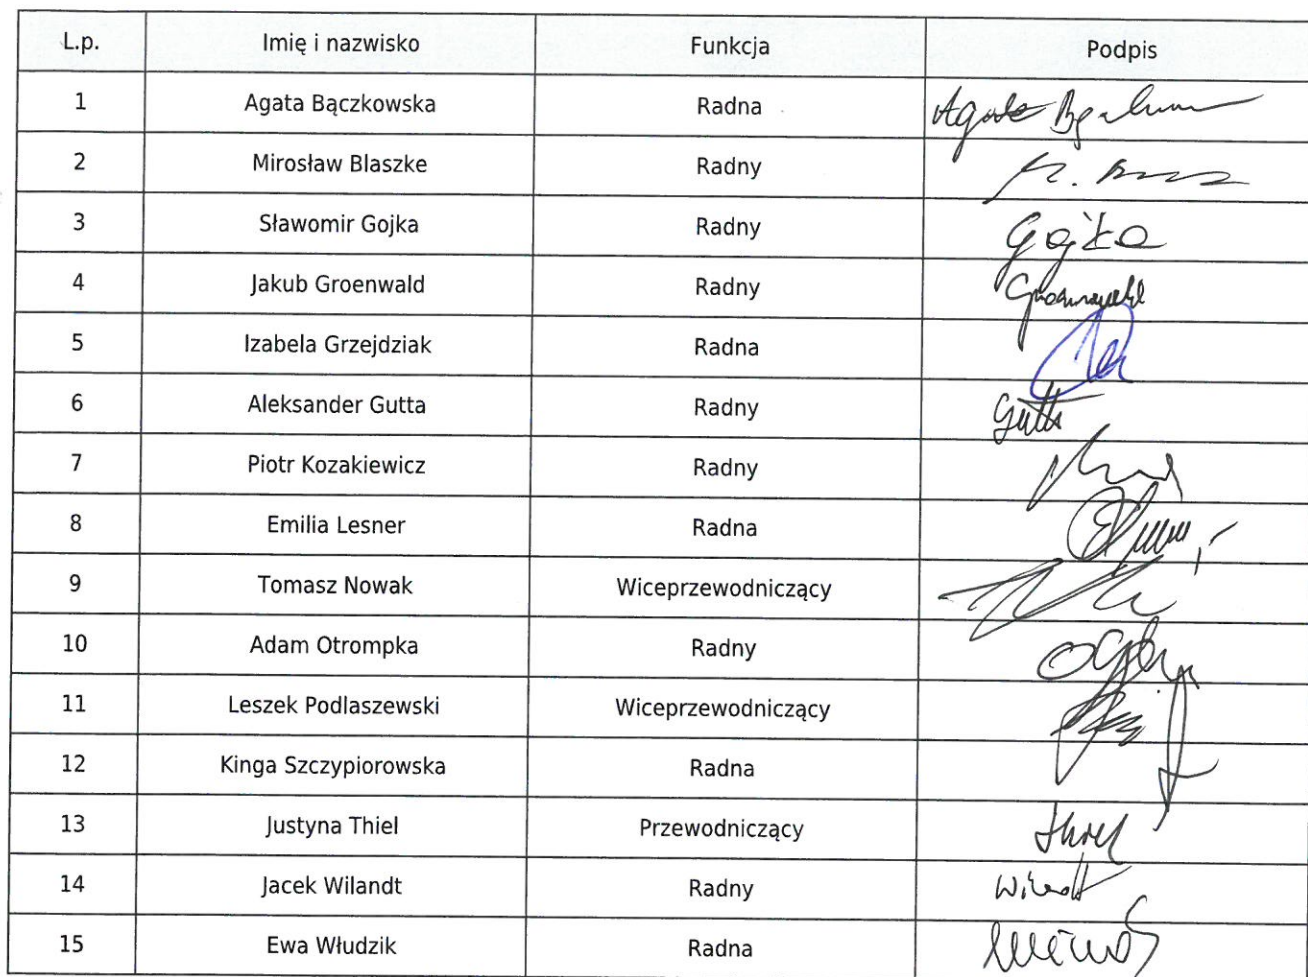 L.p. Imię i nazwisko Funkcja Podpis
1 Agata Bączkowska Radna Agata
2 Mirosław Blaszke Radny
3 Sławomir Gojka Radny Gojka
4 Jakub Groenwald Radny Groenwald
5 Izabela Grzejdziak Radna
6 Aleksander Gutta Radny Gutta
7 Piotr Kozakiewicz Radny
8 Emilia Lesner Radna
9 Tomasz Nowak Wiceprzewodniczący
10 Adam Otrompka Radny
11 Leszek Podlaszewski Wiceprzewodniczący
12 Kinga Szczypiorowska Radna
13 Justyna Thiel Przewodniczący
14 Jacek Wilandt Radny
15 Ewa Włudzik Radna